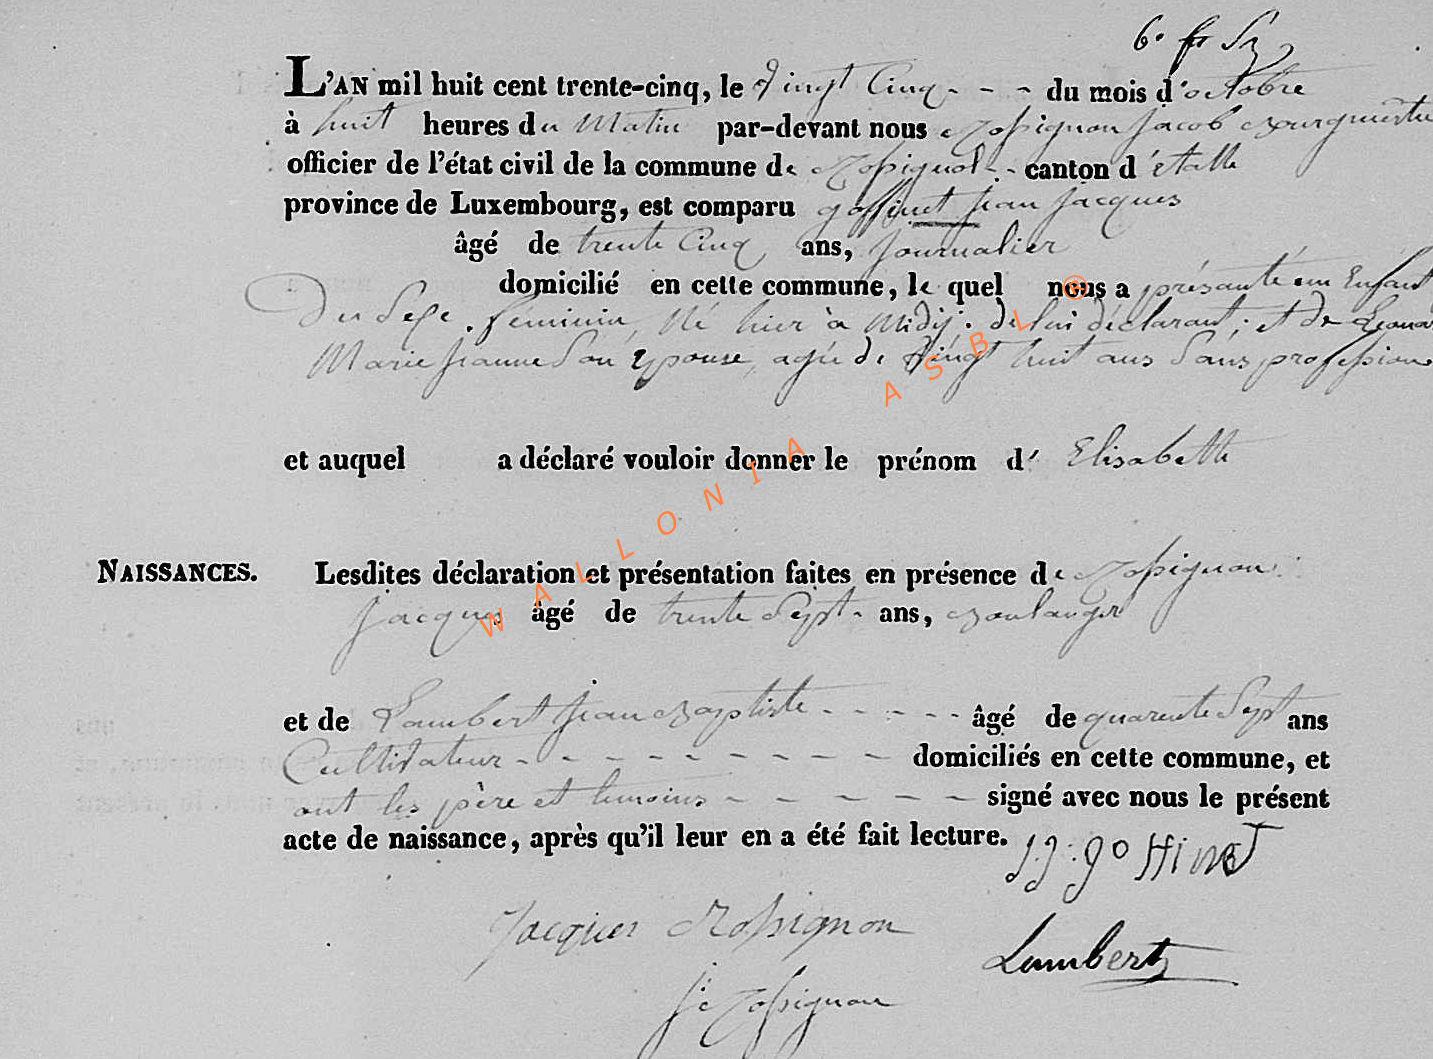 L'AN mil huit cent trente-cinq, le vingt Cinq - - - du mois d'octobre
à huit heures du Matin par-devant nous Rossignon Jacob Bourguemestre
officier de l'état civil de la commune de Rossignol - - canton d'étalle
province de Luxembourg, est comparu goffinet Jean Jacques
âgé de trente Cinq ans, Journalier
domicilié en cette commune, le quel nous a présanté un Enfant
Du Sexe féminin, Né hier à Midij. de lui déclarant; et de
Marie Jeanne Son Epouse, agée de Vingt huit ans Sans profession
et auquel a déclaré vouloir donner le prénom d'Elisabeth
NAISSANCES. Lesdites déclaration et présentation faites en présence de Rossignon
Jacques âgé de trente Sept - ans, Boulanger
et de Lambert Jean Baptiste - - - - - âgé de quarente Sept ans
Cultivateur - - - - - - - - - domiciliés en cette commune, et
ont les père et temoins - - - - - - signé avec nous le présent
acte de naissance, après qu'il leur en a été fait lecture.
J.J. goffinet
Jacques Rossignon
Lambert
J. Rossignon
WALLONIA ASBL ©